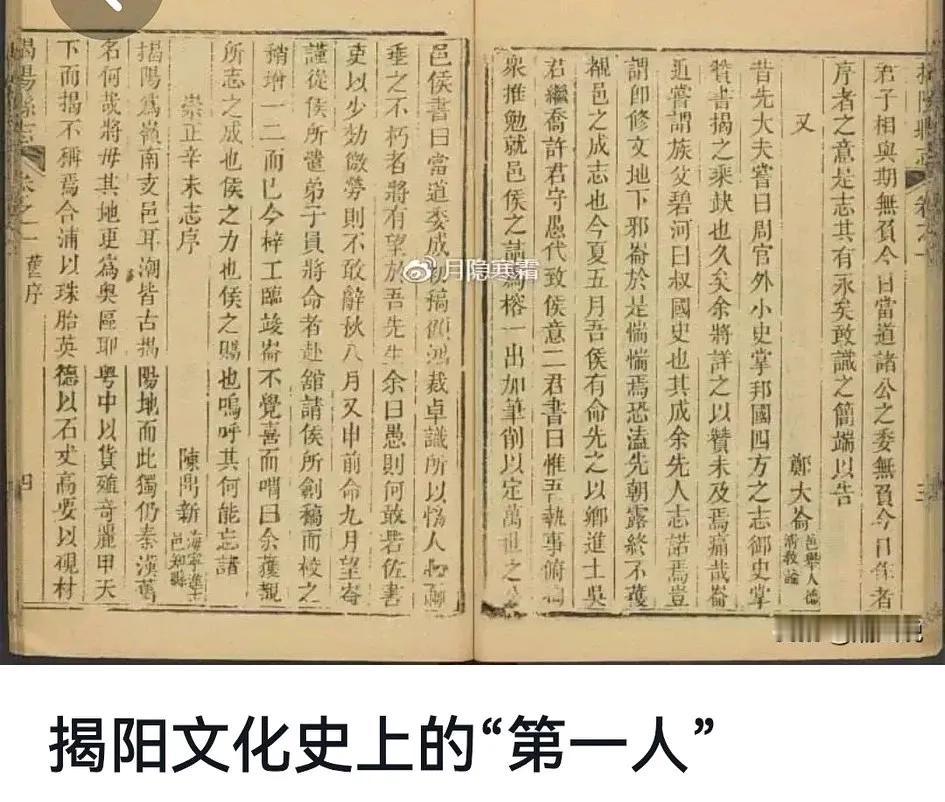 揭陽縣志 卷之一 三
君子相與期無負今日當道諸公之委無負今日作者
序者之意是志其有永矣敢識之簡端以告
又 鄭大崙 邑舉人德清教諭
昔先大夫嘗曰周官外小史掌邦國四方之志御史掌
贊書揭之乘缺也久矣余將詳之以贊未及焉痛哉崙
近嘗謂族父碧河曰叔國史也其成余先人志諾焉豈
謂卽修文地下邪崙於是惴惴焉恐溘先朝露終不獲
覩邑之成志也今夏五月吾侯有命先之以鄉進士吳
君繼喬許君守愚代致侯意二君書曰惟吾執事俯
衆推勉就邑侯之請爲榕一出加筆削以定萬世之公
邑侯書曰當道委成 稿 裁卓識所以 人
垂之不朽者將有望於吾先生余曰愚則何敢若佐書
吏以少効微勞則不敢辭秋八月又申前命九月望崙
謹從侯所遣弟子員將命者赴舘請侯所創稿而校之
稍增一二而已今梓工臨竣崙不覺喜而喟曰余獲覩
所志之成也侯之力也侯之賜也嗚呼其何能忘諸
崇正辛未志序 陳鼎新 海寧進士邑知縣
揭陽爲嶺南支邑耳潮皆古揭陽地而此獨仍秦漢舊
名何哉將毋其地更爲奥區耶粤中以貨殖奇麗甲天
下而揭不稱焉合浦以珠胎英德以石丈高要以硯材
揭陽縣志 卷之一 舊序 四
月隐寒霜
揭阳文化史上的“第一人”